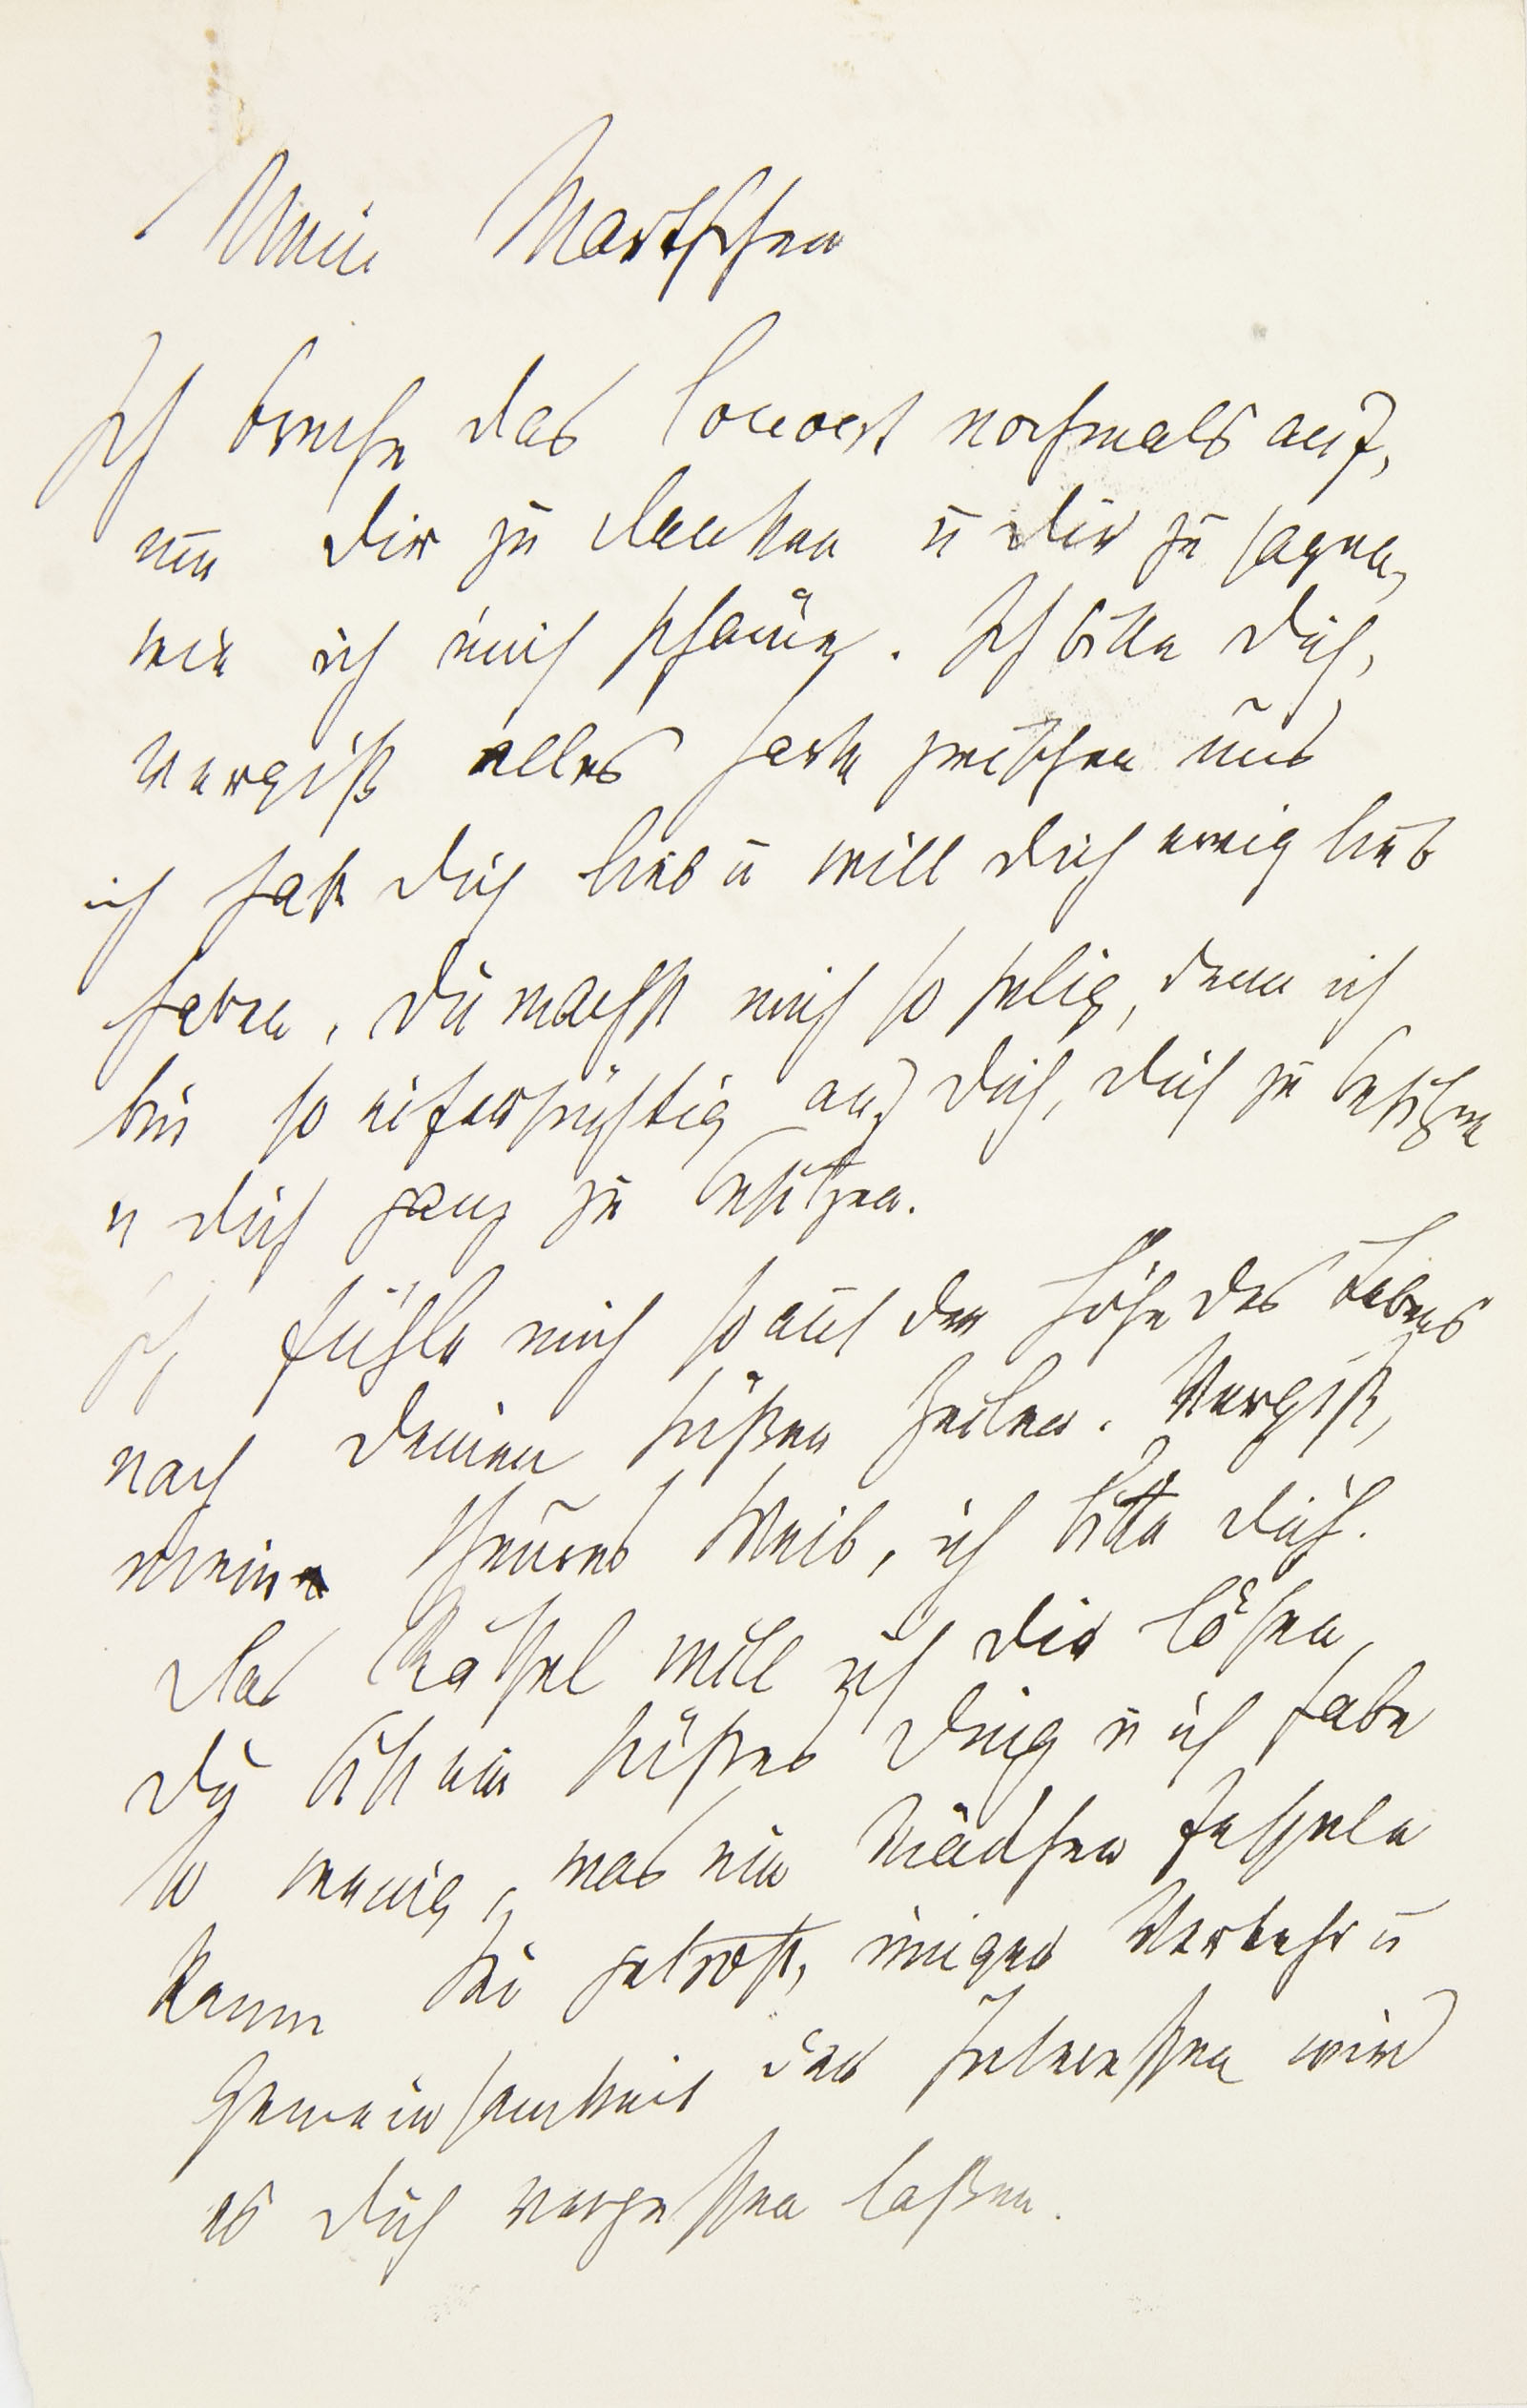 Mein Martchen
Ich breche das Couvert nochmals auf,
um Dir zu danken u Dir zu sagen,
wie ich mich schäme. Ich bitte Dich,
vergiß alles harte zwischen uns
ich hab Dich lieb u will Dich ewig lieb
haben, Du machst mich so selig, denn ich
bin so eifersüchtig auf Dich, Dich zu besitzen
u Dich ganz zu besitzen.
Ich fühle mich so auf der Höhe des Lebens
nach Deinen süßen Zeilen. Vergiß,
mein theures Weib, ich bitte Dich.
Das Räthsel will ich Dir lösen,
Du bist ein süßes Ding u ich habe
so wenig, was ein Mädchen fesseln
kann. Sei getrost, inniger Verkehr u
Gemeinsamkeit der Interessen wird
es Dich vergessen laßen.